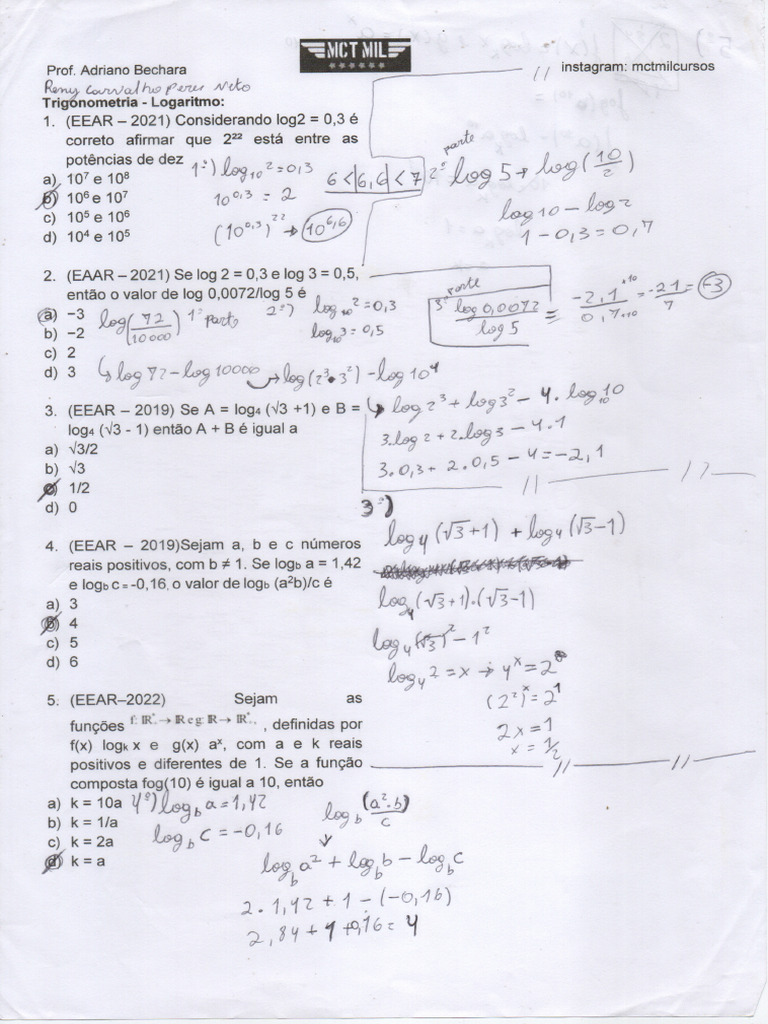 MCT MIL
Prof. Adriano Bechara
instagram: mctmilcursos
Remy Carvalho Peres Neto
Trigonometria - Logaritmo:
1. (EEAR – 2021) Considerando log2 = 0,3 é
correto afirmar que 2²² está entre as
potências de dez
a) 10⁷ e 10⁸
b) 10⁶ e 10⁷
c) 10⁵ e 10⁶
d) 10⁴ e 10⁵
1º) log₁₀ 2 = 0,3
10^0,3 = 2
(10^0,3)^22 → 10^6,6
6 < |6,6| < 7
2º parte
log 5 → log (10/2)
log 10 – log 2
1 – 0,3 = 0,7
2. (EAAR – 2021) Se log 2 = 0,3 e log 3 = 0,5,
então o valor de log 0,0072/log 5 é
a) −3
b) −2
c) 2
d) 3
log (72/10000) 1º parte
2º) log₁₀ 2 = 0,3
log₁₀ 3 = 0,5
↳ log 72 – log 10000 → log (2³ • 3²) – log 10⁴
3º parte
log 0,0072 / log 5 = −2,1 •10 / 0,7 •10 = −21/7 = −3
↳ log 2³ + log 3² – 4 . log₁₀ 10
3.log 2 + 2.log 3 – 4.1
3.0,3 + 2.0,5 – 4 = −2,1
3. (EEAR – 2019) Se A = log₄ (√3 +1) e B =
log₄ (√3 - 1) então A + B é igual a
a) √3/2
b) √3
c) 1/2
d) 0
3º)
log₄ (√3 + 1) + log₄ (√3 – 1)
log₄ (√3 + 1) . (√3 – 1)
log₄ (√3)² – 1²
log₄ 2 = x → 4^x = 2
(2²)^x = 2¹
2x = 1
x = 1/2
4. (EEAR – 2019)Sejam a, b e c números
reais positivos, com b ≠ 1. Se log_b a = 1,42
e log_b c = -0,16, o valor de log_b (a²b)/c é
a) 3
b) 4
c) 5
d) 6
5. (EEAR–2022) Sejam as
funções f: ℝ*₊ → ℝ e g: ℝ → ℝ*₊ , definidas por
f(x) log_k x e g(x) a^x, com a e k reais
positivos e diferentes de 1. Se a função
composta fog(10) é igual a 10, então
a) k = 10a
b) k = 1/a
c) k = 2a
d) k = a
4º) log_b a = 1,42
log_b c = −0,16
log_b (a².b)/c
log_b a² + log_b b – log_b c
2 . 1,42 + 1 – (−0,16)
2,84 + 1 + 0,16 = 4